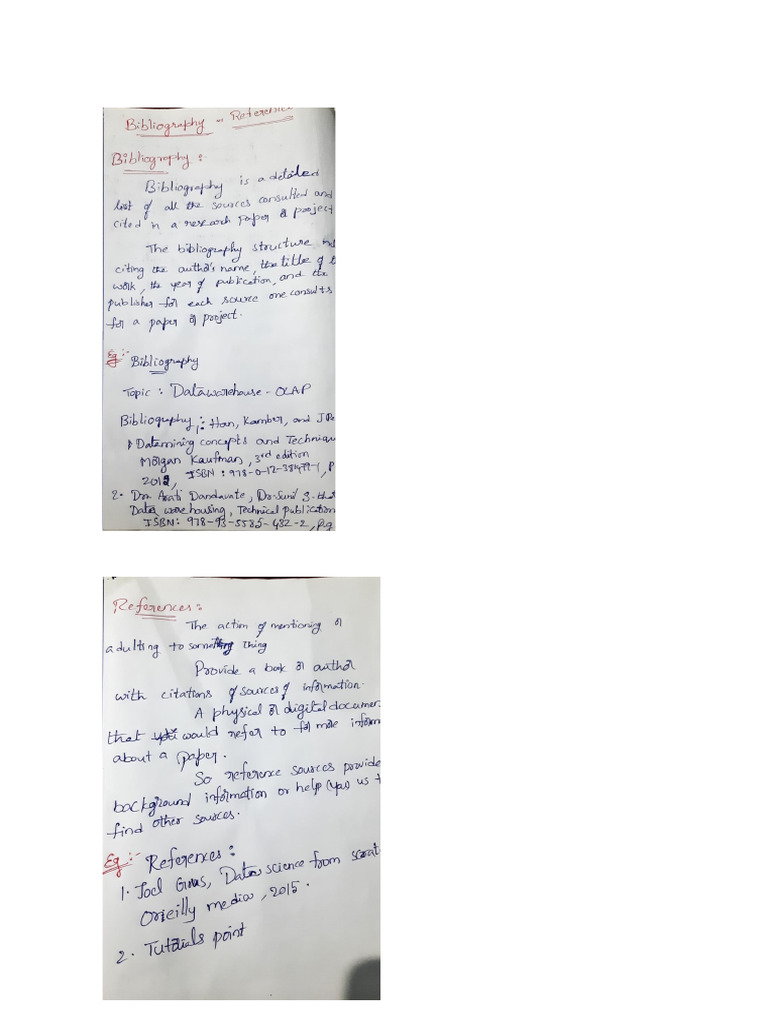 Bibliography Reference
Bibliography :-
Bibliography is a detailed
list of all the sources consulted and
cited in a research paper or project
The bibliography structure
citing the author's name, the title of
work, the year of publication, and the
publisher for each source one consults
for a paper or project.
Eg :- Bibliography
Topic : Datawarehouse - OLAP
Bibliography : Han, Kamber, and J
1. Datamining concepts and Techniqu
Morgan Kaufman, 3rd edition
ISBN : 978-0-12-381479-1, P
2. Dr. Arati Dandavate,
Data warehousing, Technical publication
ISBN: 978-93-5585-432-2,
References :
The action of mentioning or
adulting to something thing
Provide a book or author
with citations of sources of information.
A physical or digital documen
that would refer to for more inform
about a paper.
So reference sources provide
background information or help (you) us
find other sources.
Eg :- References :
1. Joel Grus, Data science from scrat
Orieilly media, 2015.
2. Tutorials point